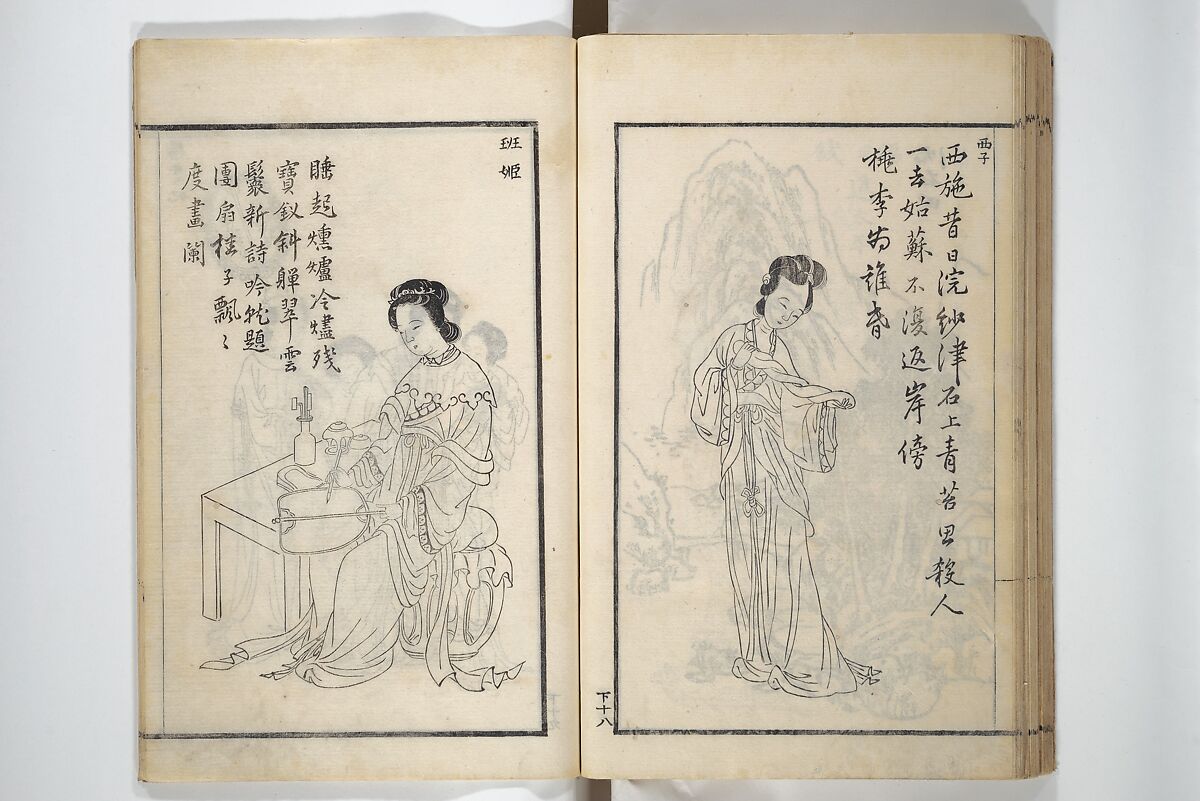 西子
西施昔日浣紗津石上青苔思殺人
一去姑蘇不復返岸傍
桃李為誰春
下十八
班姬
睡起燻爐冷燼殘
寶釵斜軃翠雲
鬟新詩吟就題
團扇桂子飄〻
度畫闌